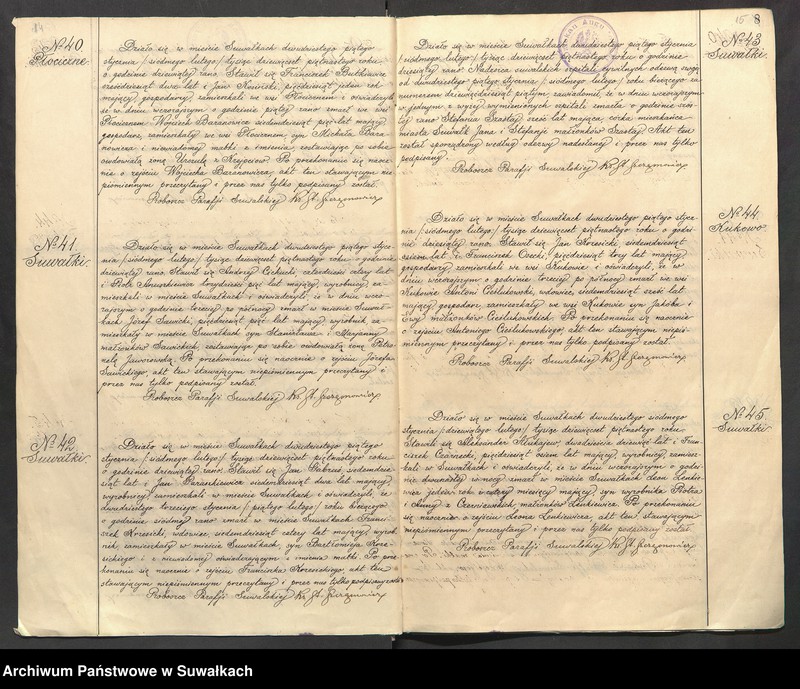 14
№ 40
Płocicino.
Działo się w mieście Suwałkach dwudziestego piątego
stycznia /siódmego lutego/ tysiąc dziewięćset piętnastego roku
o godzinie dziewiątej rano. Stawił się Franciszek Butkiewicz
sześćdziesiąt dwa lat i Jan Kosiński, pięćdziesiąt jeden rok
mający, gospodarze, zamieszkali we wsi Płocicznie i oświadczyli
że w dniu wczorajszym o godzinie piątej rano zmarł we wsi
Płocicznie Wojciech Baranowicz siedemdziesiąt pięć lat mający
gospodarz zamieszkały we wsi Płocicznie syn Michała Bara-
nowicza i niewiadomej matki z imienia, zostawiając po sobie
owdowiałą żonę Urszulę z Krzywców. Po przekonaniu się naocz-
nie o zejściu Wojciecha Baranowicza, akt ten stawającym nie-
piśmiennym przeczytany i przez nas tylko podpisany został.
Proboszcz Parafji Suwalskiej Ks. St. Szczęsnowicz
№ 41
Suwałki.
Działo się w mieście Suwałkach dwudziestego piątego stycz-
nia /siódmego lutego/ tysiąc dziewięćset piętnastego roku o godzinie
dziewiątej rano. Stawił się Andrzej Cichucki czterdzieści cztery lat
i Piotr trzydzieści pięć lat mający, wyrobnicy za-
mieszkali w mieście Suwałkach i oświadczyli, że w dniu wczo-
rajszym o godzinie trzeciej po północy zmarł w mieście Suwał-
kach Józef Sawicki, pięćdziesiąt pięć lat mający wyrobnik za-
mieszkały w mieście Suwałkach syn Stanisława i Marjanny
małżonków Sawickich, zostawiając po sobie owdowiałą żonę Petro-
nelę Jaworowską. Po przekonaniu się naocznie o zejściu Józefa
Sawickiego, akt ten stawającym niepiśmiennym przeczytany i
przez nas tylko podpisany został.
Proboszcz Parafji Suwalskiej Ks. St. Szczęsnowicz
№ 42
Suwałki.
Działo się w mieście Suwałkach dwudziestego piątego
stycznia /siódmego lutego/ tysiąc dziewięćset piętnastego roku
o godzinie dziewiątej rano. Stawił się Jan Gabruś, siedemdzie-
siąt lat i Jan siedemdziesiąt dwa lat mający,
wyrobnicy zamieszkali w mieście Suwałkach i oświadczyli, że
dwudziestego trzeciego stycznia /piątego lutego/ roku bieżącego
o godzinie siódmej rano zmarł w mieście Suwałkach Franci-
szek Krzesicki, wdowiec, siedemdziesiąt cztery lat mający, wyrob-
nik zamieszkały w mieście Suwałkach, syn Bartłomieja Krze-
sickiego i z niewiadomej oświadczającym z imienia matki. Po prze-
konaniu się naocznie o zejściu Franciszka Krzesickiego, akt ten
stawającym niepiśmiennym przeczytany i przez nas tylko podpisany został.
Proboszcz Parafji Suwalskiej Ks. St. Szczęsnowicz
15 8
№ 43
Suwałki.
Działo się w mieście Suwałkach dwudziestego piątego stycznia
/siódmego lutego/ tysiąc dziewięćset piętnastego roku o godzinie
dziesiątej rano. Nadzorca suwalskich szpitali cywilnych odezwą swoją
od dwudziestego piątego stycznia /siódmego lutego/ roku bieżącego za
numerem dziewięćdziesiąt piątym, zawiadomił, że w dniu wczorajszym
w jednym z wyżej wymienionych szpitali zmarła o godzinie szós-
tej rano Stefanja Szostak sześć lat mająca, córka mieszkańca
miasta Suwałk Jana i Stefanji małżonków Szostak. Akt ten
został sporządzony według odezwy nadesłanej i przez nas tylko
podpisany.
Proboszcz Parafji Suwalskiej Ks. St. Szczęsnowicz
№ 44
Kukowo.
Działo się w mieście Suwałkach dwudziestego piątego stycz-
nia /siódmego lutego/ tysiąc dziewięćset piętnastego roku o godzi-
nie dziesiątej rano. Stawił się Jan Krzesicki siedemdziesiąt
osiem lat i Franciszek Czocki, pięćdziesiąt trzy lat mający
gospodarze zamieszkali we wsi Kukowie i oświadczyli, że w
dniu wczorajszym o godzinie trzeciej po północy zmarł we wsi
Kukowie Antoni Cieślukowski, wdowiec, siedemdziesiąt sześć lat
mający gospodarz zamieszkały we wsi Kukowie syn Jakóba i
Ewy małżonków Cieślukowskich. Po przekonaniu się naocznie
o zejściu Antoniego Cieślukowskiego, akt ten stawającym niepiś-
miennym przeczytany i przez nas tylko podpisany został.
Proboszcz Parafji Suwalskiej Ks. St. Szczęsnowicz
№ 45
Suwałki.
Działo się w mieście Suwałkach dwudziestego siódmego
stycznia /dziewiątego lutego/ tysiąc dziewięćset piętnastego roku.
Stawili się Aleksander dwadzieścia dziewięć lat i Fran-
ciszek Czarnecki, pięćdziesiąt osiem lat mający, wyrobnicy, zamiesz-
kali w Suwałkach i oświadczyli, że w dniu wczorajszym o godzi-
nie dwunastej w nocy zmarł w mieście Suwałkach Leon Lenkie-
wicz jeden rok cztery miesięcy mający, syn wyrobnika Piotra
i Anny z Czerniewskich małżonków Lenkiewicz. Po przekonaniu
się naocznie o zejściu Leona Lenkiewicza, akt ten stawającym
niepiśmiennym przeczytany i przez nas tylko podpisany został.
Proboszcz Parafji Suwalskiej Ks. St. Szczęsnowicz
Archiwum Państwowe w Suwałkach